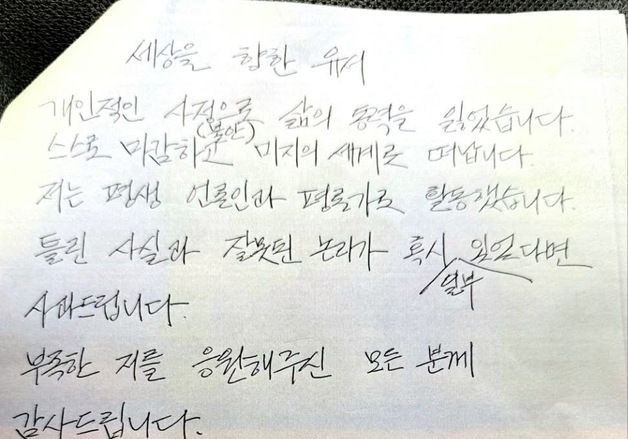 세상을 향한 유서
개인적인 사정으로 삶의 동력을 잃었습니다.
스스로 마감하고(불안) 미지의 세계로 떠납니다.
저는 평생 언론인과 평론가로 활동했습니다.
틀린 사실과 잘못된 논리가 혹시 일부 있었다면
사과드립니다.
부족한 저를 응원해주신 모든 분께
감사드립니다.